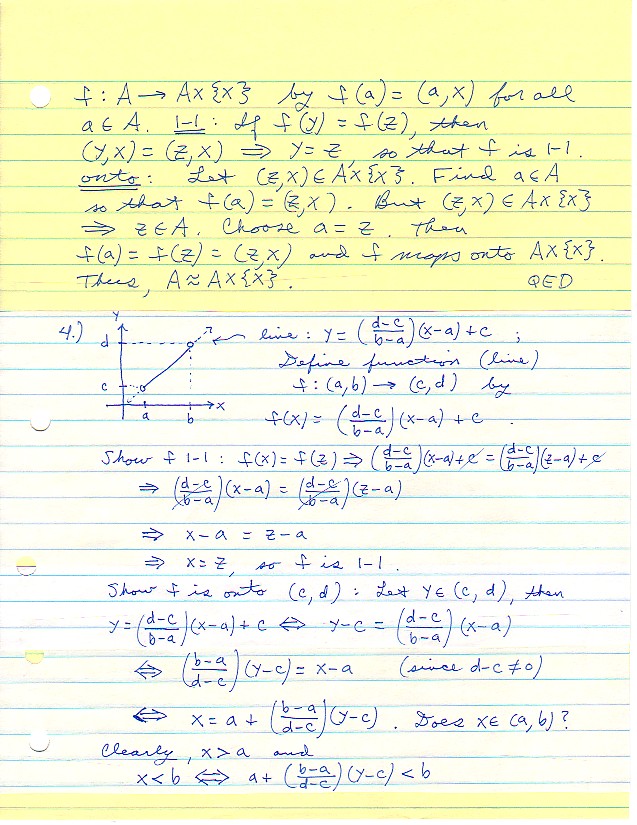 f : A → A×{x} by f(a) = (a,x) for all
a ∈ A. 1-1: If f(y) = f(z), then
(y,x) = (z,x) ⇒ y = z, so that f is 1-1.
onto: Let (z,x) ∈ A×{x}. Find a ∈ A
so that f(a) = (z,x). But (z,x) ∈ A×{x}
⇒ z ∈ A. Choose a = z. Then
f(a) = f(z) = (z,x) and f maps onto A×{x}.
Thus, A ≈ A×{x}. QED
4.) y d c a b x line: y = ((d-c)/(b-a))(x-a)+c ;
Define function (line)
f : (a,b) → (c,d) by
f(x) = ((d-c)/(b-a))(x-a) + c .
Show f 1-1 : f(x) = f(z) ⇒ ((d-c)/(b-a))(x-a)+c = ((d-c)/(b-a))(z-a)+c
⇒ ((d-c)/(b-a))(x-a) = ((d-c)/(b-a))(z-a)
⇒ x-a = z-a
⇒ x = z, so f is 1-1.
Show f is onto (c,d) : Let y ∈ (c,d), then
y = ((d-c)/(b-a))(x-a)+c ⇔ y-c = ((d-c)/(b-a))(x-a)
⇔ ((b-a)/(d-c))(y-c) = x-a (since d-c ≠ 0)
⇔ x = a + ((b-a)/(d-c))(y-c) . Does x ∈ (a,b)?
Clearly, x > a and
x < b ⇔ a + ((b-a)/(d-c))(y-c) < b